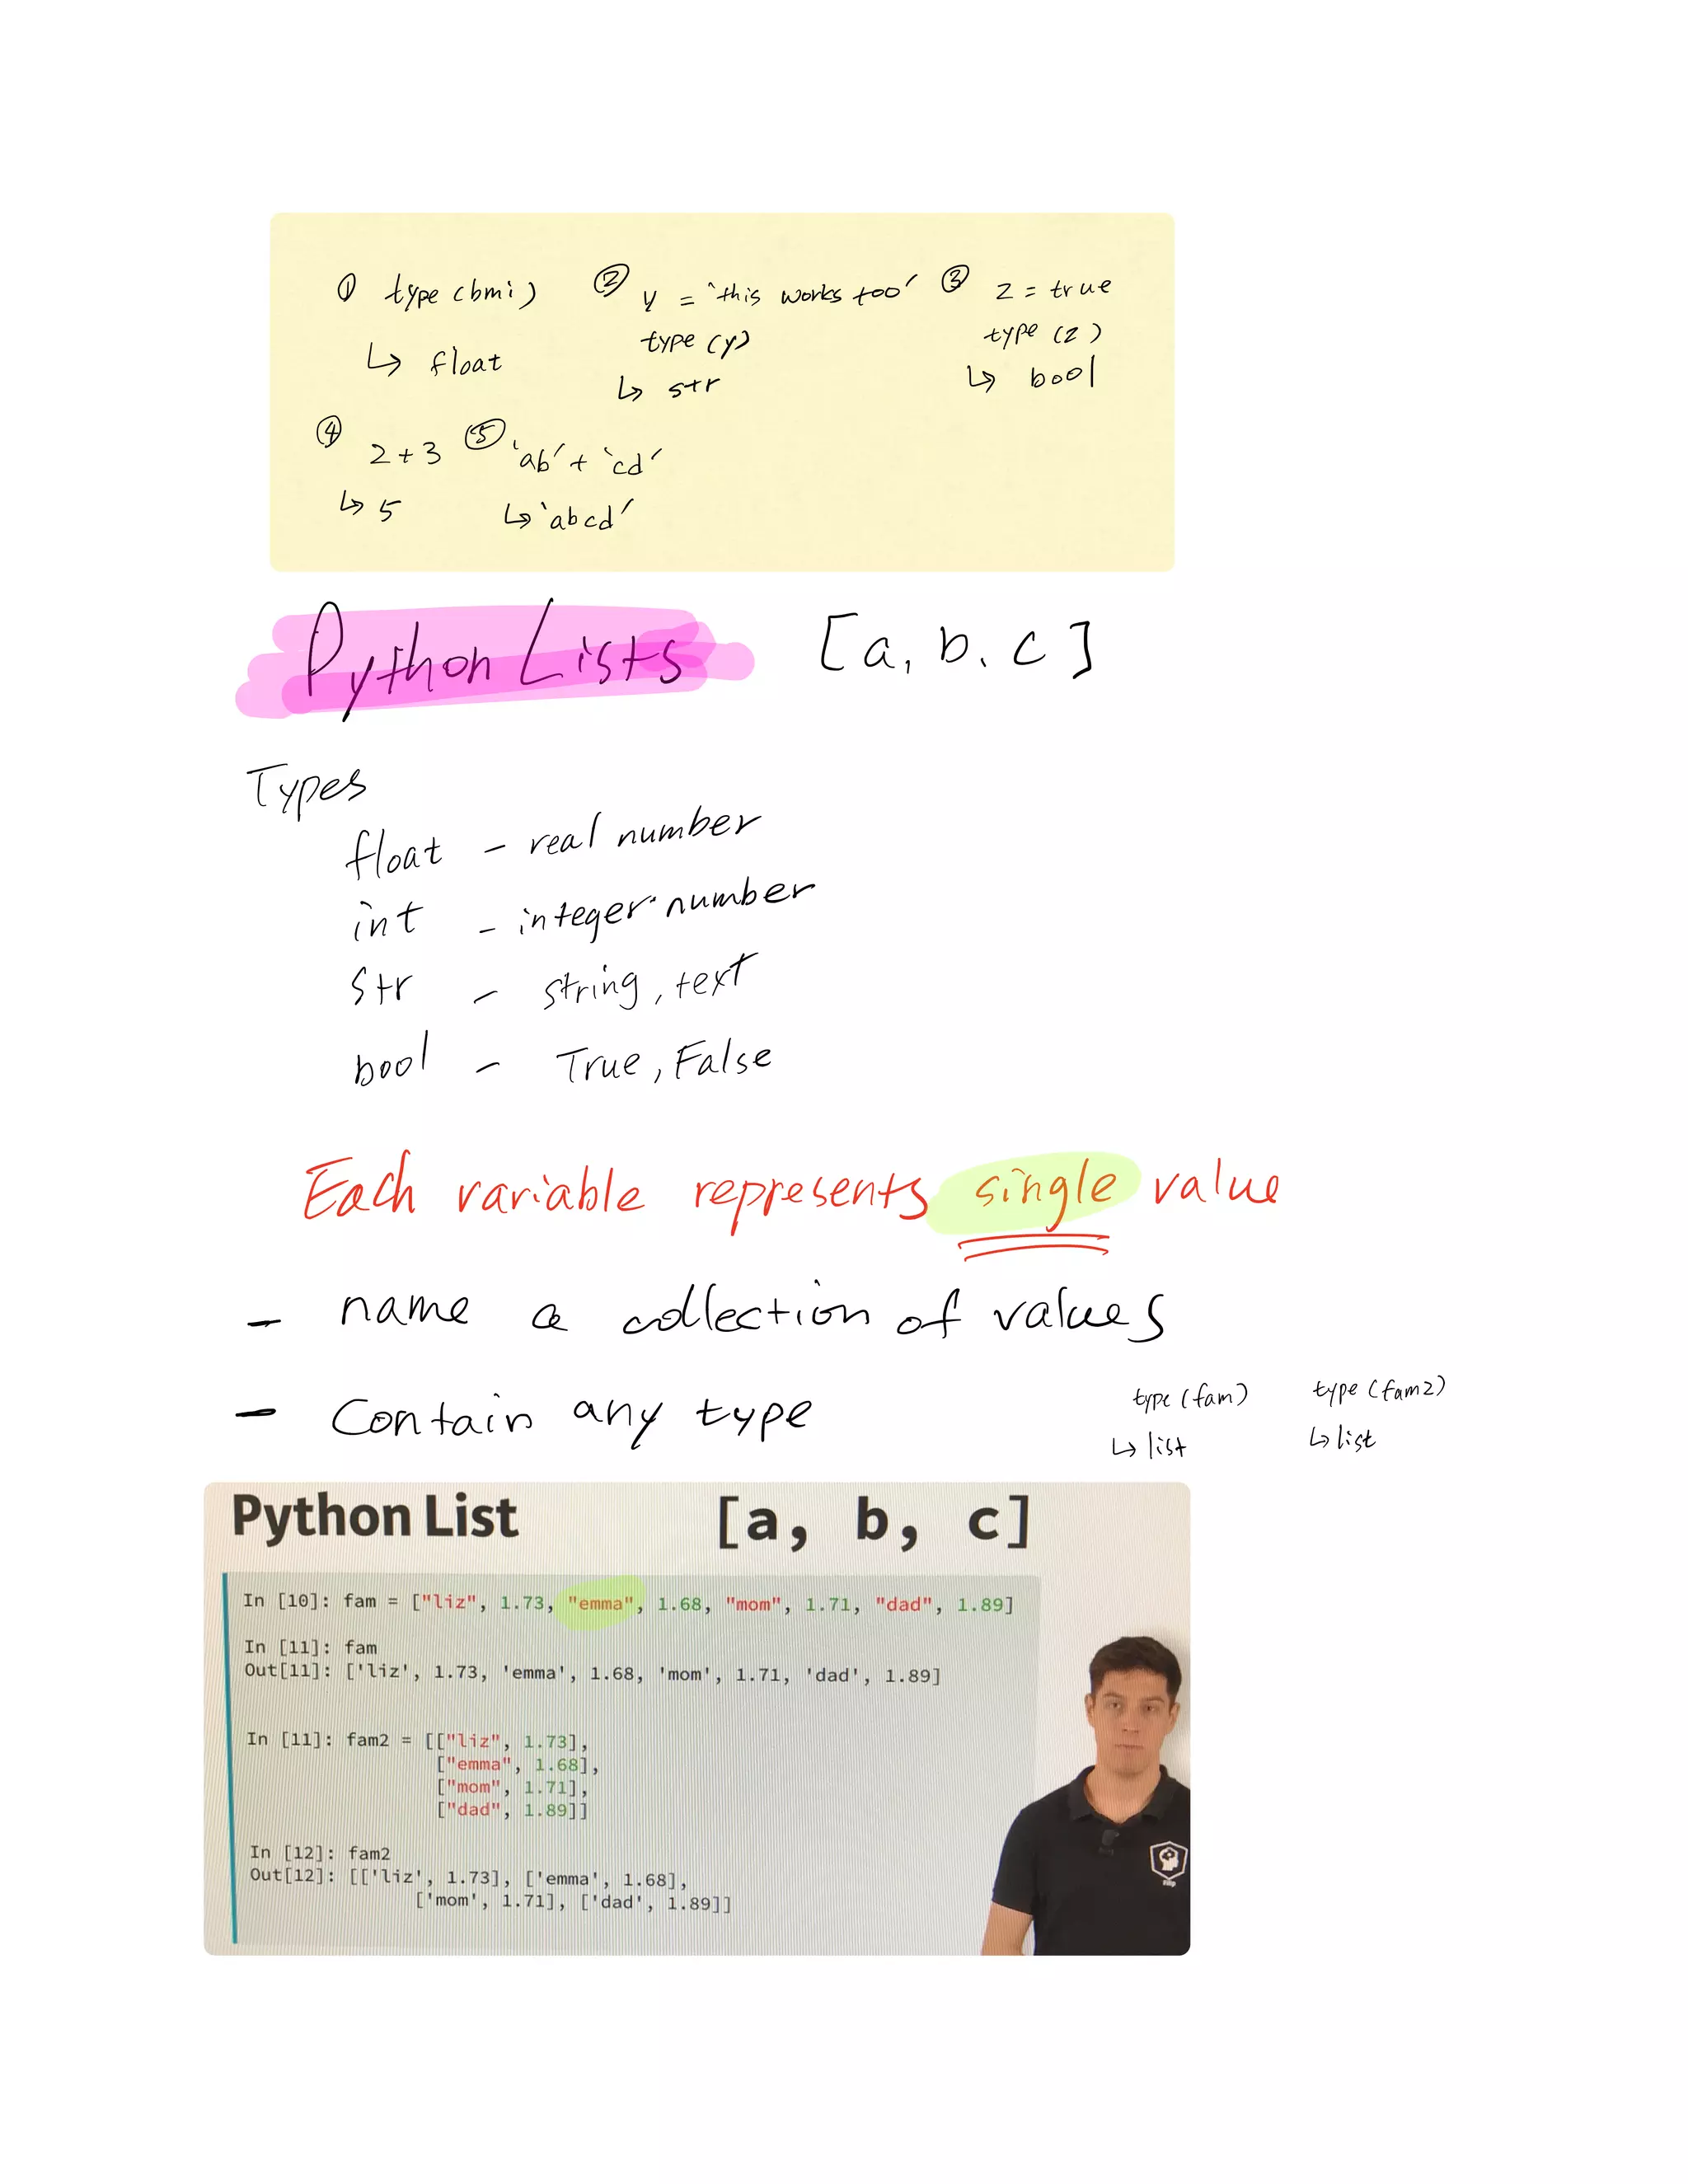 ① type (bmi) ② y = 'this works too' ③ z = true
↳ float type (y) type (z)
↳ str ↳ bool
④ 2+3 ⑤ 'ab' + 'cd'
↳ 5 ↳ 'abcd'
Python Lists [a, b, c]
Types
float - real number
int - integer number
str - string, text
bool - True, False
Each variable represents single value
- name a collection of values
- Contain any type
type (fam) type (fam2)
↳ list ↳ list
Python List [a, b, c]
In [10]: fam = ["liz", 1.73, "emma", 1.68, "mom", 1.71, "dad", 1.89]
In [11]: fam
Out[11]: ['liz', 1.73, 'emma', 1.68, 'mom', 1.71, 'dad', 1.89]
In [11]: fam2 = [["liz", 1.73],
["emma", 1.68],
["mom", 1.71],
["dad", 1.89]]
In [12]: fam2
Out[12]: [['liz', 1.73], ['emma', 1.68],
['mom', 1.71], ['dad', 1.89]]